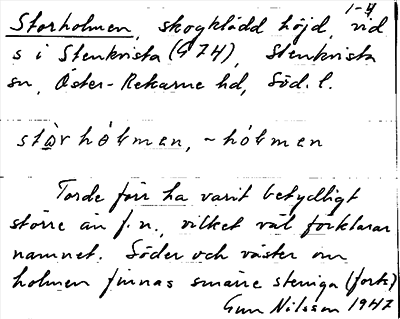 1-4
Storholmen, skogklädd höjd, vid
s i Stenkvista (G 74), Stenkvista
sn, Öster-Rekarne hd, Söd. l.
stòrhólmen, ~hólmen
Torde förr ha varit betydligt
större än f.n., vilket väl förklarar
namnet. Söder och väster om
holmen finnas smärre steniga (forts)
Gun Nilsson 1947